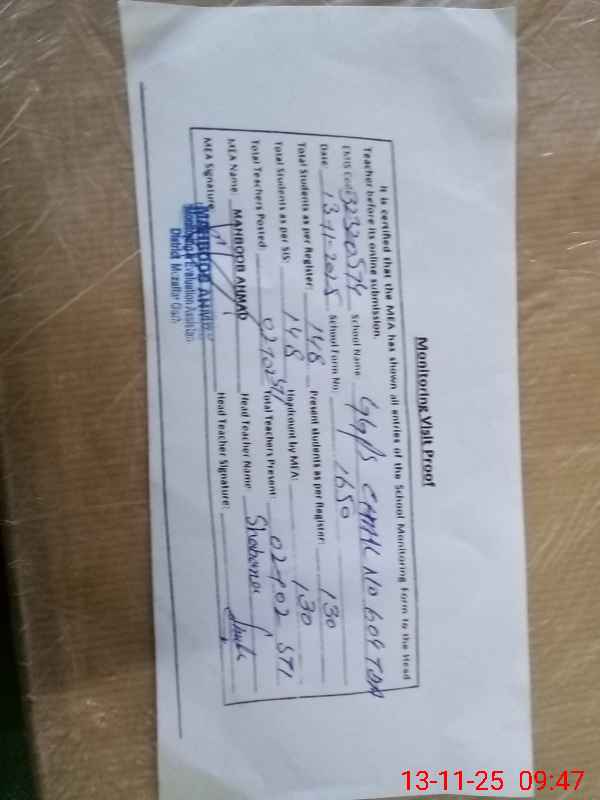 Monitoring Visit Proof
It is certified that the MEA has shown all entries of the School Monitoring Form to the Head
Teacher before its online submission.
EMIS Code 32320574 School Name: GGPS CHAK NO 604 TDA
Date: 13-11-2025 School Form No: 1650
Total Students as per Register: 148 Present students as per Register: 130
Total Students as per SIS: 148 Headcount by MEA: 130
Total Teachers Posted: 02+02 STI Total Teachers Present: 02+02 STI
MEA Name: MAHBOOB AHMAD Head Teacher Name: Shabana
MEA Signature: Head Teacher Signature:
MAHBOOB AHMAD
Monitoring & Evaluation Assistant
District Muzaffar Garh
13-11-25 09:47